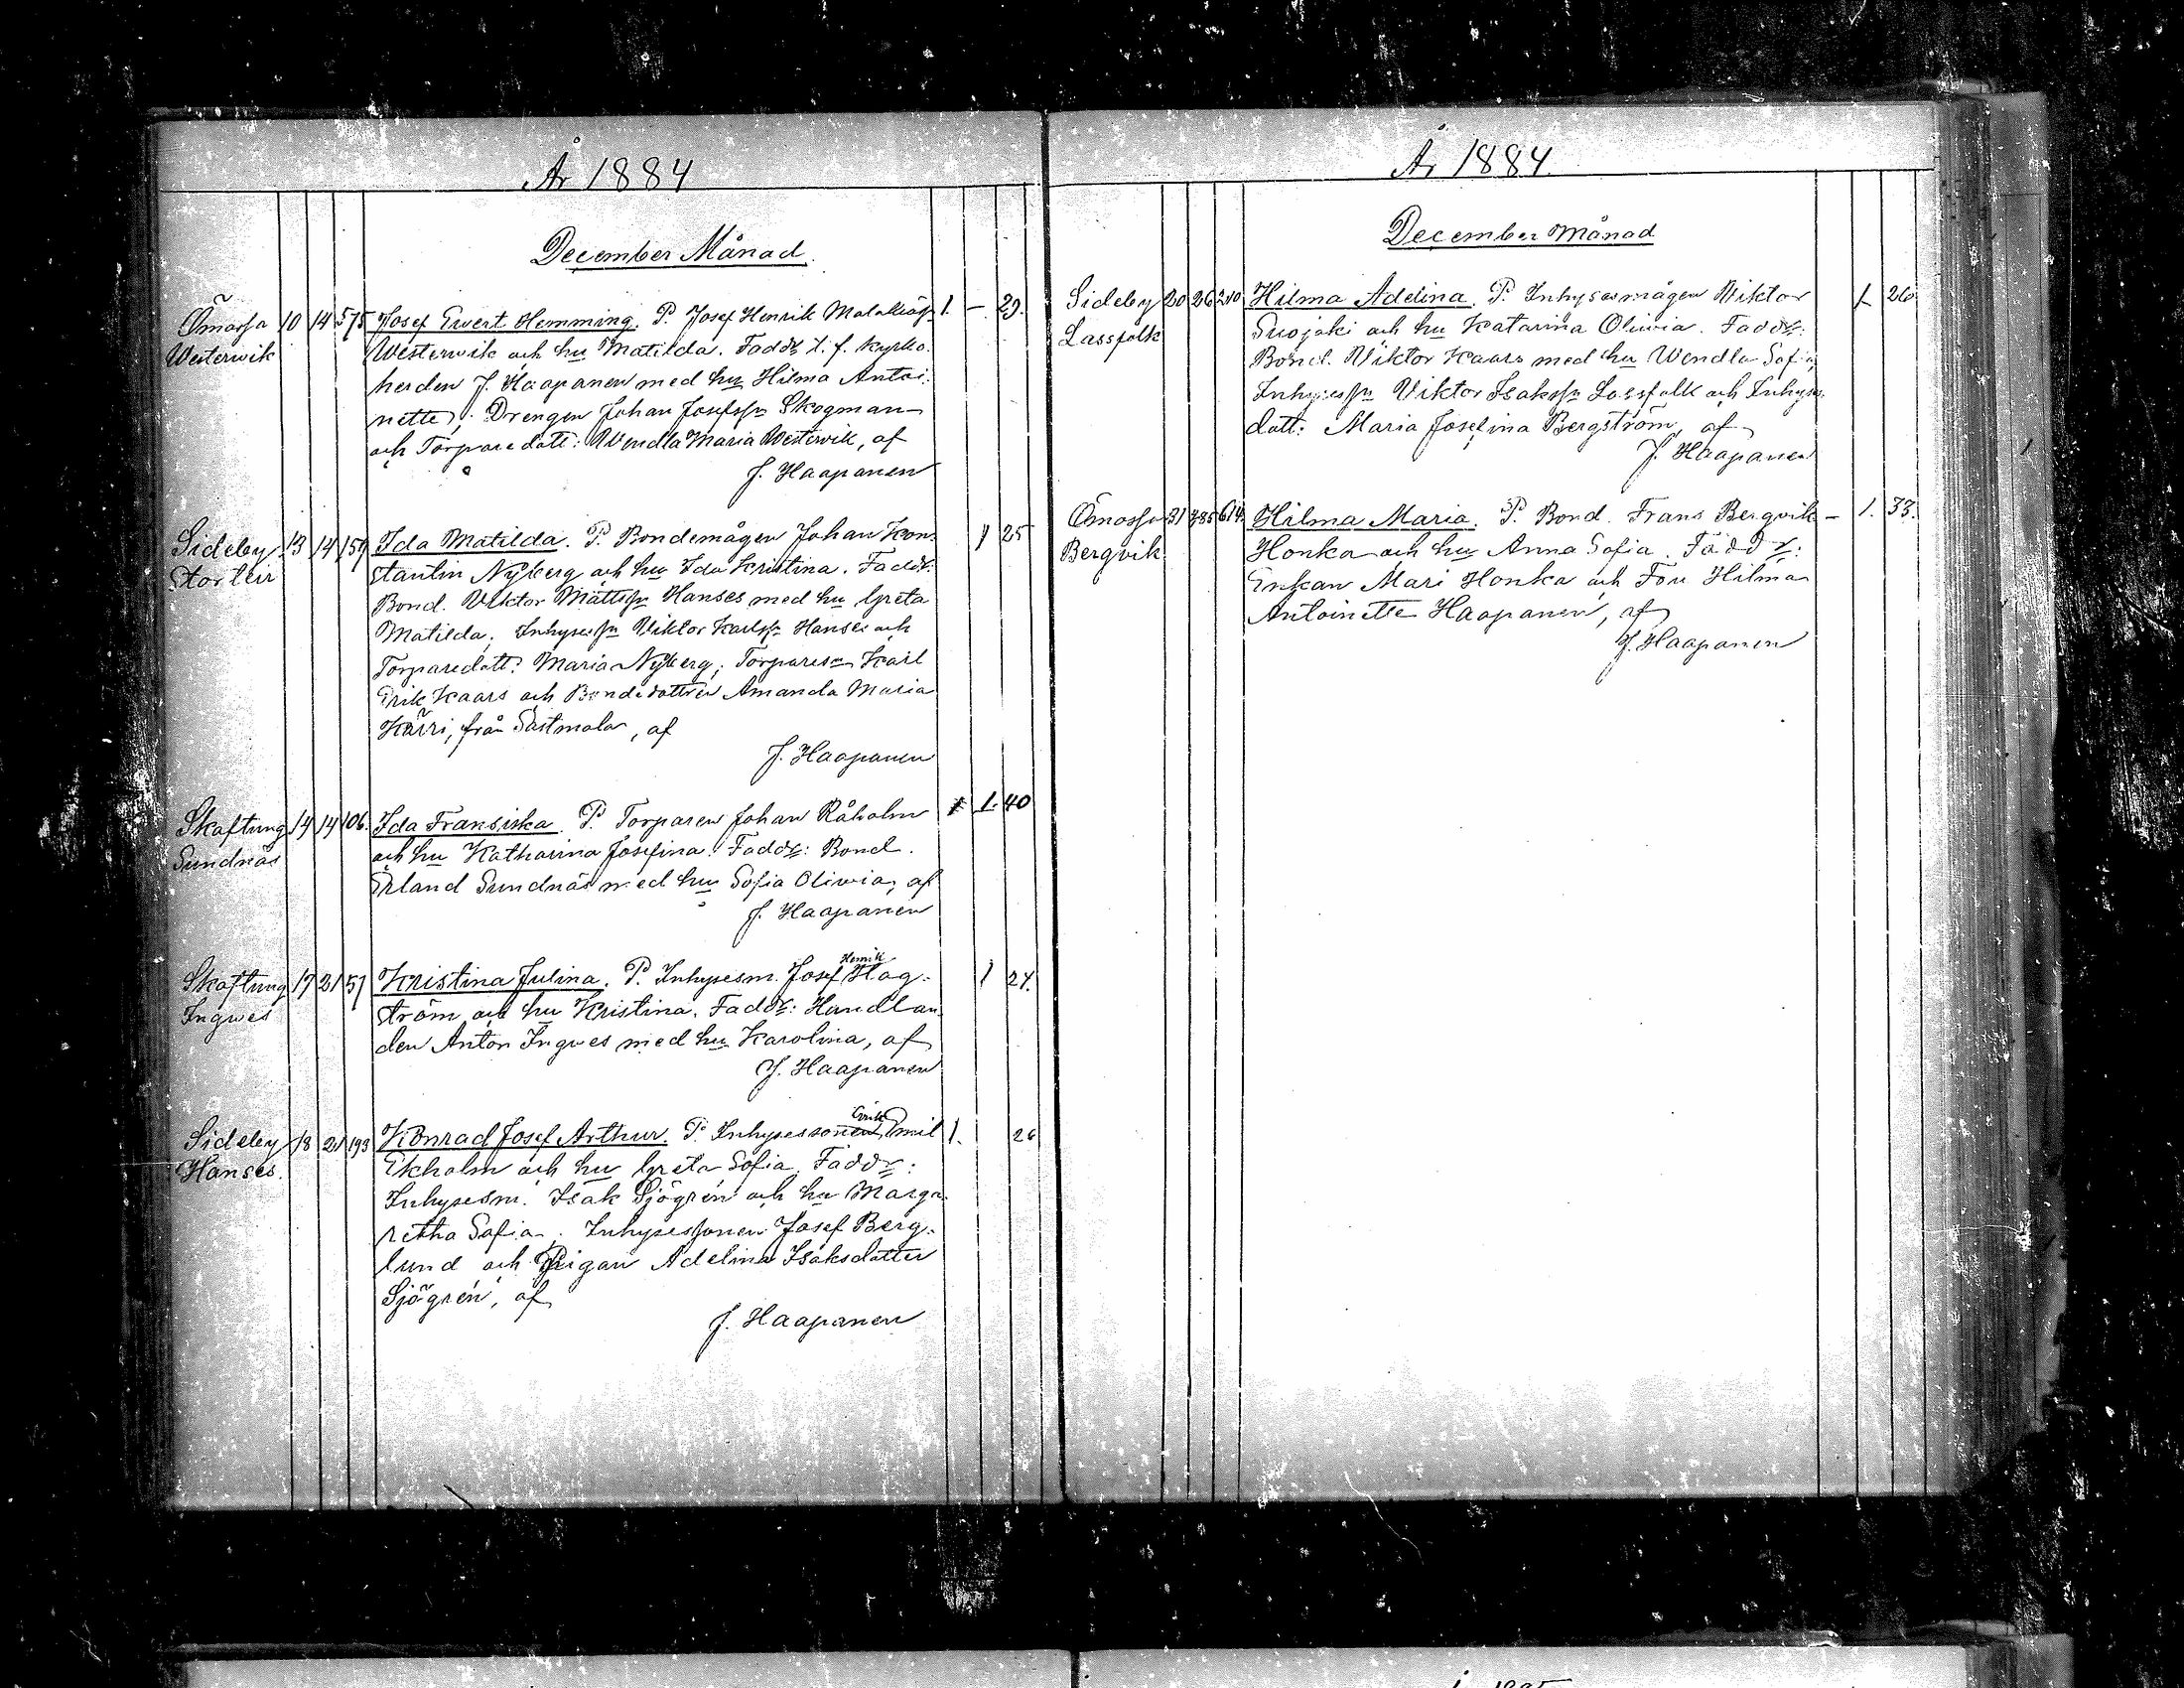 År 1884
December Månad.
Ömossa 10 14 575 Josef Ewert Hemming. P. Josef Henrik 1. – 29.
Westerwik Westerwik och hu Matilda. Faddr t. f. Kyrko-
herden J. Haapanen med hu Hilma Antoi-
nette; Drengen Johan Josefss Skogman
och Torparedott: Wendla Maria Westerwik, af
J. Haapanen
Sideby 13 14 159 Ida Matilda. P. Bondemågen Johan Kon- 1 25
Storteir stantin Nyberg och hu Ida Kristina. Faddr.
Bond. Viktor Mattss Hanses med hu Greta
Matilda; Inhysess Viktor Karlss Hanses och
Torparedott: Maria Nyberg; Torpares Karl
Erik Kaars och Bondedottren Amanda Maria
Kärri, från Sastmola, af
J. Haapanen
Skaftung 14 14 106. Ida Fransiska. P. Torparen Johan Råholm 1. 40
Sundnäs och hu Katharina Josefina. Faddr: Bond.
Erland Sundnäs med hu Sofia Oliwia, af
J. Haapanen
Henrik
Skaftung 17 21 51 Kristina Julina. P. Inhysesm. Josef Hag- 1 24.
Ingwes ström och hu Kristina. Faddr: Handlan-
den Anton Ingves med hu Karolina, af
J. Haapanen
Erik
Sideby 18 21 193 Konrad Josef Arthur. P. Inhysessonen Emil 1. 26
Hanses. Ekholm och hu Greta Sofia. Faddr:
Inhysesm. Isak Sjögrén och hu Marga-
retha Sofia. Inhysessonen Josef Berg-
lund och Pigan Adelina Isaksdotter
Sjögrén, af
J. Haapanen
År 1884.
December Månad
Sideby 20 26 210 Hilma Adelina. P. Inhysesmågen Wiktor 1. 26
Lassfolk Suojoki och hu Katarina Oliwia. Faddr:
Bond. Wiktor Kaars med hu Wendla Sofia;
Inhysess Viktor Isakss Lassfolk och Inhyses
dott: Maria Josefina Bergström, af
J. Haapanen
Ömossa 31 614. Hilma Maria. P. Bond. Frans Bergvik – 1. 33.
Bergvik Honka och hu Anna Sofia. Faddr:
Enkan Mari Honka och Fru Hilma
Antoinette Haapanen, af
J. Haapanen